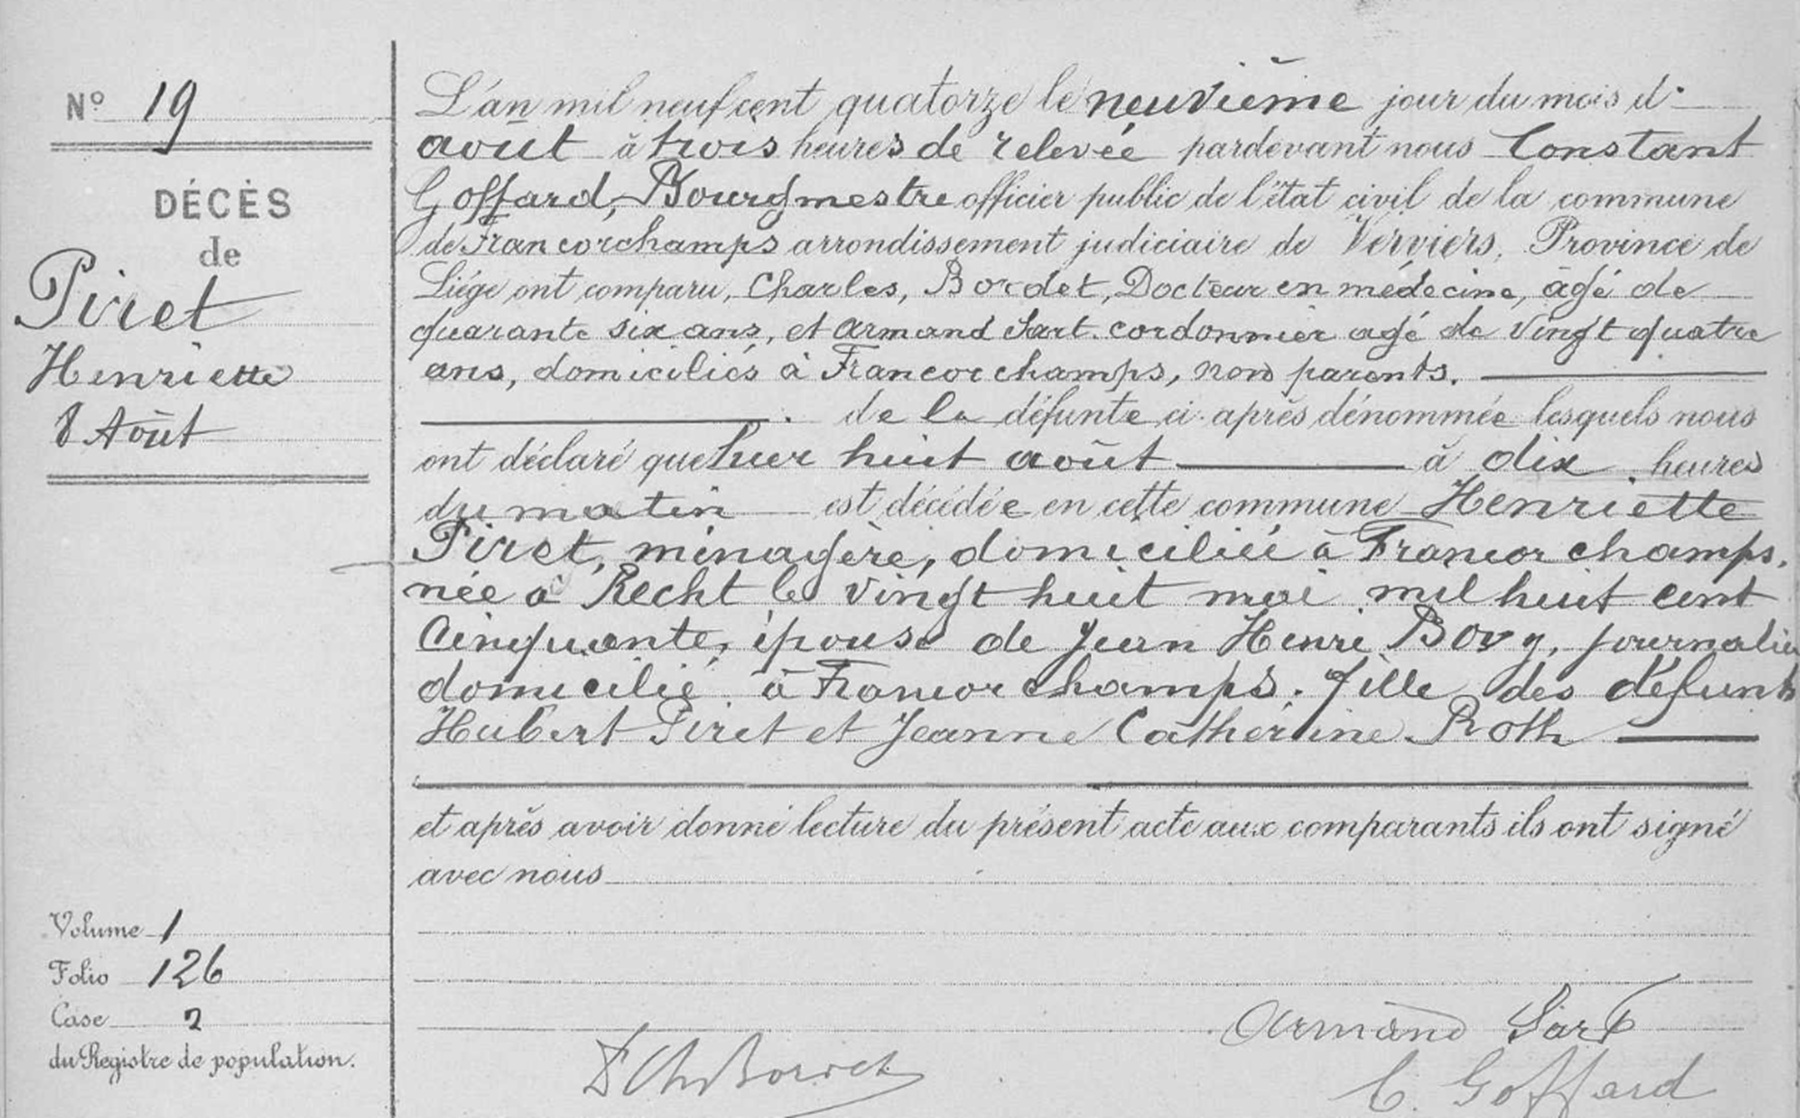 Nº 19
DÉCÈS
de
Piret
Henriette
8 Août
Volume 1
Folio 126
Case 2
du Registre de population.
L'an mil neuf cent quatorze le neuvième jour du mois d'
août à trois heures de relevée pardevant nous Constant
Goffard, Bourgmestre officier public de l'état civil de la commune
de Francorchamps arrondissement judiciaire de Verviers, Province de
Liége ont comparu, Charles, Bordet, Docteur en médecine, âgé de
quarante six ans, et Armand Sart. cordonnier agé de vingt quatre
ans, domiciliés à Francorchamps, non parents.
de la défunte ci-après dénommée lesquels nous
ont déclaré que hier huit août à dix heures
du matin est décédée en cette commune Henriette
Piret, ménagère, domiciliée à Francorchamps,
née à Recht le vingt huit mai mil huit cent
cinquante, épouse de Jean Henri Bovy, journalier
domicilié à Francorchamps. fille des défunts
Hubert Piret et Jeanne Catherine Roth
et après avoir donné lecture du présent acte aux comparants ils ont signé
avec nous
Armand Sart
C. Goffard